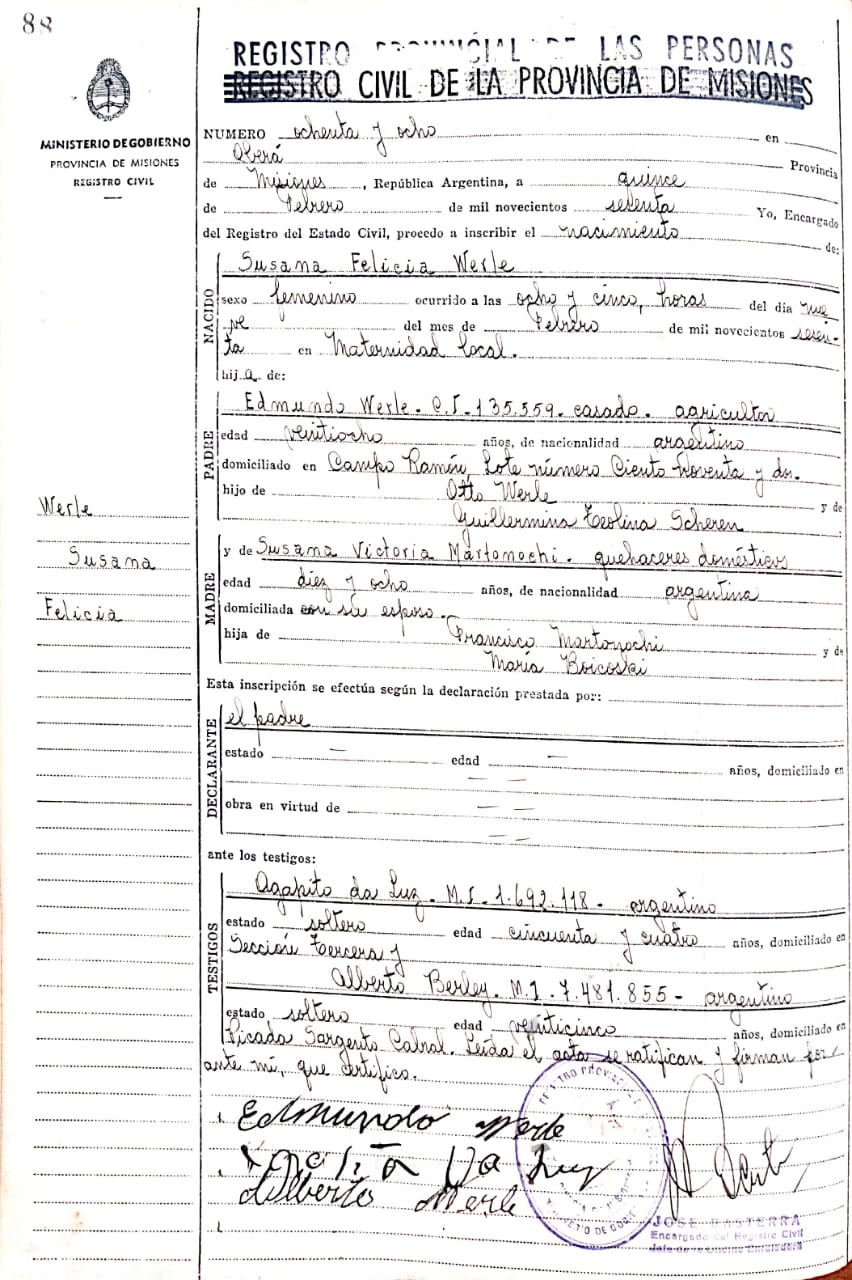 88
MINISTERIO DE GOBIERNO
PROVINCIA DE MISIONES
REGISTRO CIVIL
Werle
Susana
Felicia
REGISTRO PROVINCIAL DE LAS PERSONAS
REGISTRO CIVIL DE LA PROVINCIA DE MISIONES
NUMERO ochenta y ocho en
Oberá Provincia
de Misiones, República Argentina, a quince
de Febrero de mil novecientos setenta Yo, Encargado
del Registro del Estado Civil, procedo a inscribir el nacimiento de:
NACIDO
Susana Felicia Werle
sexo femenino ocurrido a las ocho y cinco, horas del día nue
ve del mes de Febrero de mil novecientos seten-
ta en Maternidad local.
hija de:
PADRE
Edmundo Werle. C.I. 135.559. casado. agricultor
edad veintiocho años, de nacionalidad argentino
domiciliado en Campo Ramón, Lote número Ciento Noventa y dos.
hijo de Otto Werle y de
Guillermina Teolina Scheren :
MADRE
y de Susana Victoria Martonochi. quehaceres domésticos
edad diez y ocho años, de nacionalidad argentina
domiciliada con su esposo.
hija de Francisco Martonochi y de
María Boicoski
Esta inscripción se efectúa según la declaración prestada por:
DECLARANTE
el padre
estado — edad — años, domiciliado en
— —
obra en virtud de — —
— —
ante los testigos:
TESTIGOS
Agapito da Luz. M.I. 1.692.118 - argentino
estado soltero edad cincuenta y cuatro años, domiciliado en
Sección Tercera y
Alberto Berley. M.I. 7.481.855 - argentino
estado soltero edad veinticinco años, domiciliado en
Picada Sargento Cabral. Leída el acta se ratifican y firman por
ante mí, que certifico.
Edmundo Werle
Da Luz
Alberto Werle
JOSE BASTERRA
Encargado del Registro Civil